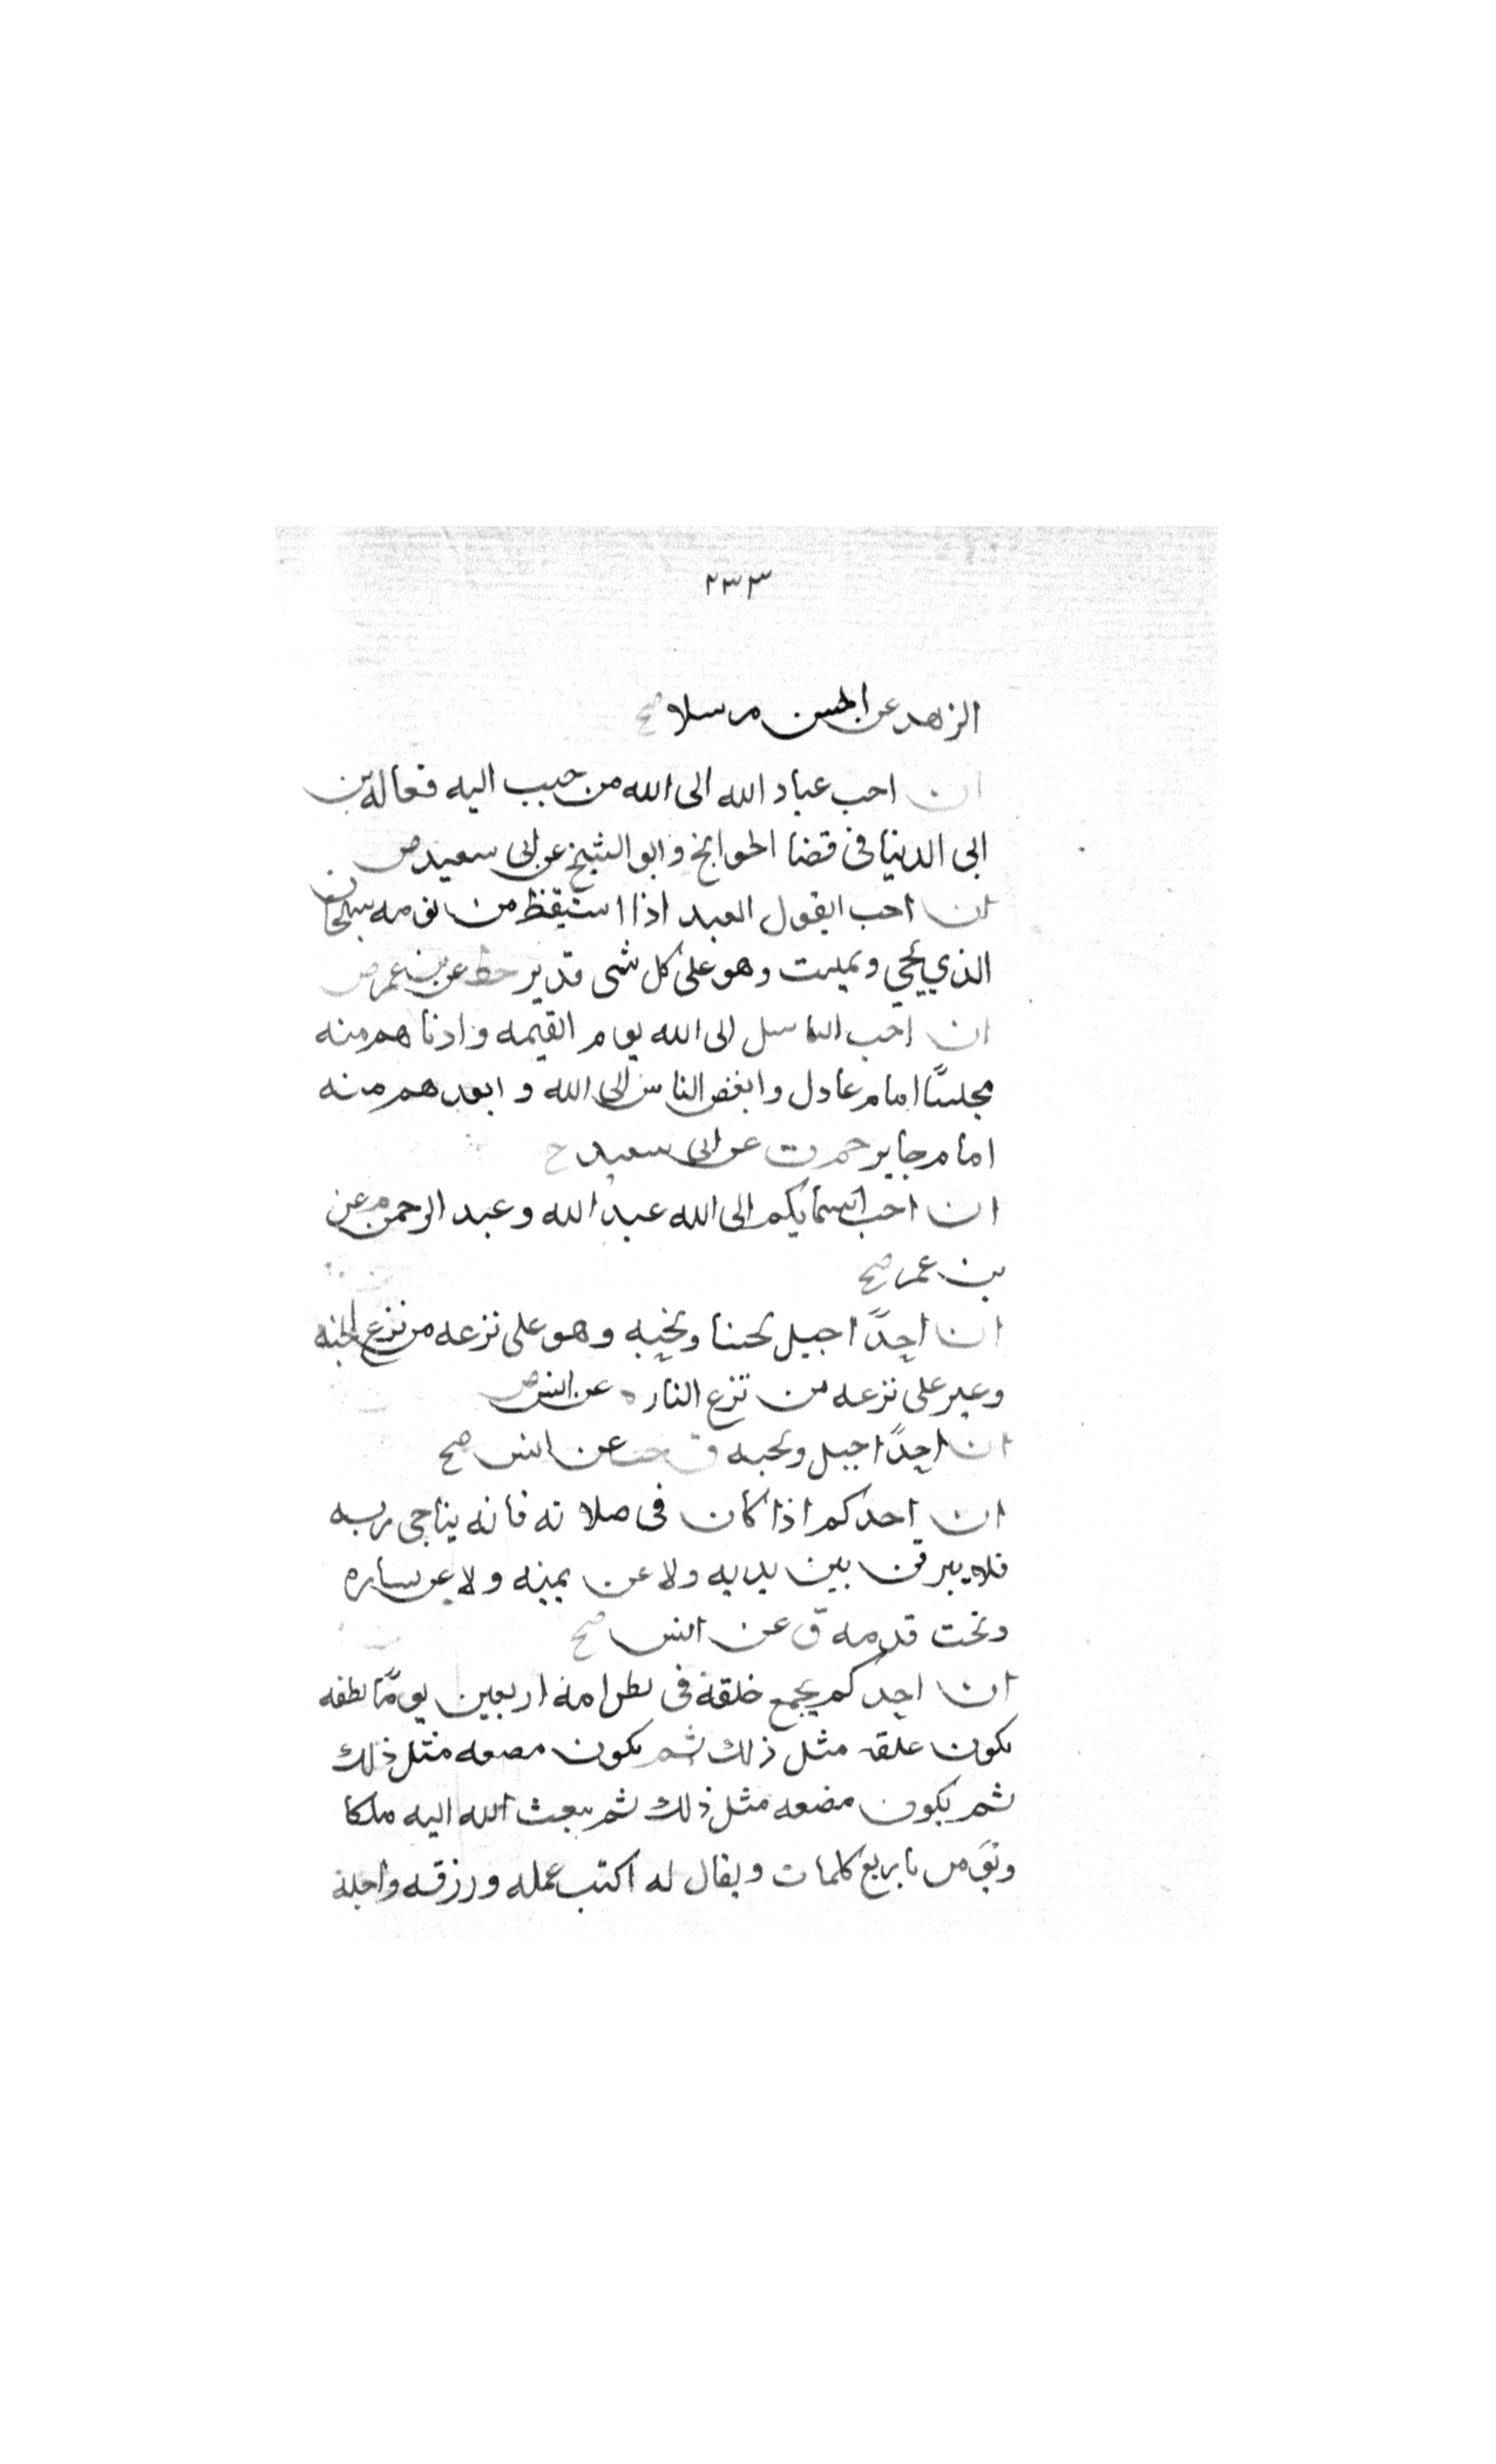 ٢٣٣
الزهد عن الحسن مرسلا صح
ان احب عباد الله الى الله من حبب اليه فعاله بن
ابى الدنيا فى قضا الحوايج وابو الشيخ عن ابى سعيد ض
ان احب القول العبد اذا استيقظ من نومه سبحان
الذي يحيي ويميت وهو على كل شى قدير خط عن بن عمر ض
ان احب الناس الى الله يوم القيمه وادناهم منه
مجلسًا امام عادل وابغض الناس الى الله وابعدهم منه
امام جاير حم ت عن ابى سعيد ح
ان احب اسمايكم الى الله عبد الله وعبد الرحمن م عن
بن عمر صح
ان احدًا جبل يحبنا ونحبه وهو على نزعه من نزع الجنه
وعير على نزعه من نزع النار ه عن انس ض
ان احدًا جبل ونحبه ق عن انس صح
ان احدكم اذا كان فى صلاته فانه يناجى ربه
فلا يبرقن بين يديه ولا عن يمينه ولا عن ساره
وتحت قدمه ق عن انس صح
ان احدكم يجمع خلقه فى بطن امه اربعين يومًا نطفه
يكون علقه مثل ذلك ثم يكون مضعه مثل ذلك
ثم يكون مضعه مثل ذلك ثم يبعث الله اليه ملكا
ويؤمر باربع كلمات ويقال له اكتب عمله ورزقه واجله